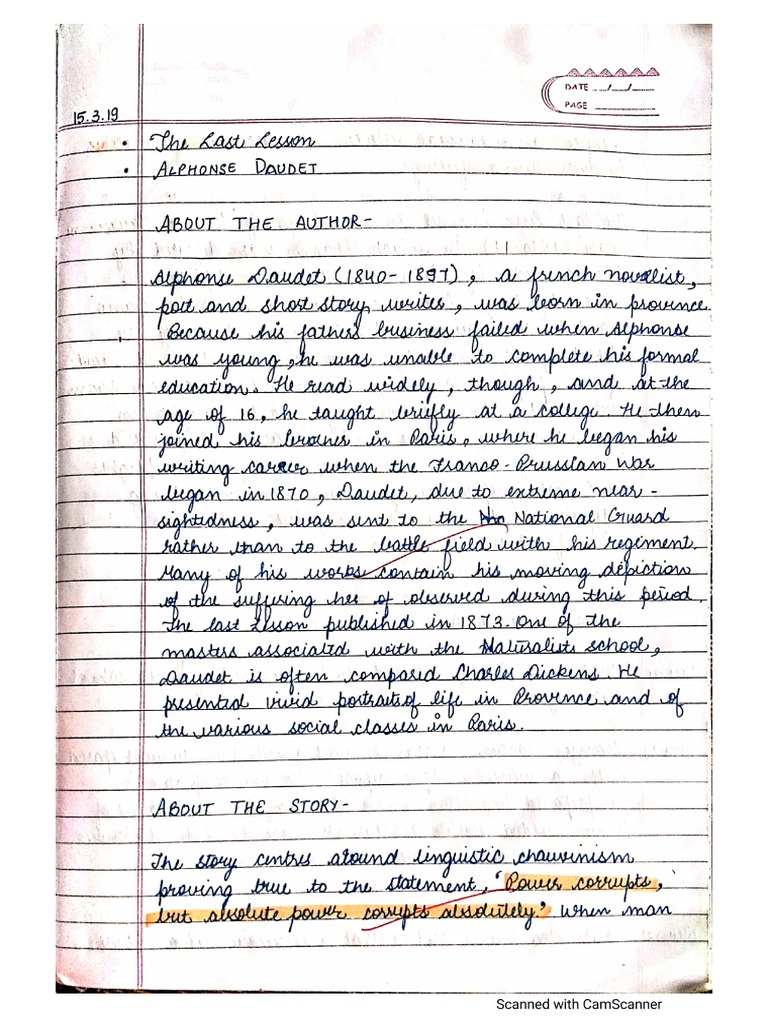 DATE __/__/__
PAGE ______
15.3.19
• The Last Lesson
• ALPHONSE DAUDET
ABOUT THE AUTHOR-
Alphonse Daudet (1840- 1897), a french novelist,
poet and short story writer, was born in province.
Because his fathers business failed when Alphonse
was young, he was unable to complete his formal
education. He read widely, though, and at the
age of 16, he taught briefly at a college. He then
joined his brother in Paris, where he began his
writing career when the Franco-Prussian War
began in 1870, Daudet, due to extreme near-
sightedness, was sent to the National Guard
rather than to the battle field with his regiment.
Many of his works contain his moving depiction
of the suffering he of observed during this period.
The last Lesson published in 1873. One of the
masters associated with the Naturalist school,
Daudet is often compared Charles Dickens. He
presented vivid portraits of life in Provence and of
the various social classes in Paris.
ABOUT THE STORY-
The story centres around linguistic chauvinism
proving true to the statement, "Power corrupts,
but absolute power corrupts absolutely." When man
Scanned with CamScanner